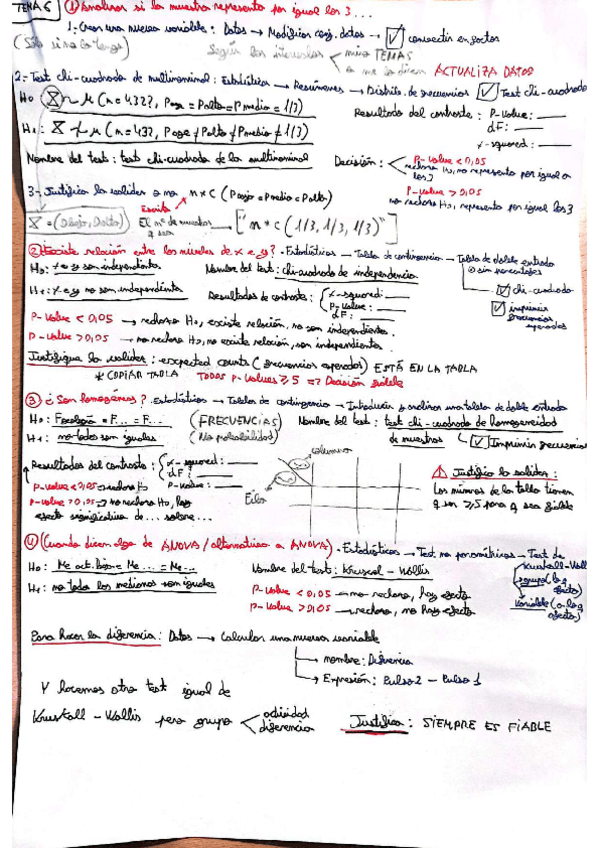 TEMA 6 ① Analizar si la muestra representa por igual los 3 ...
1.- Crear una nueva variable : Datos → Modificar conj. datos → ☑ convertir en factor
(Sólo si no lo tengo) Según los intervalos mira TEMAS
o me lo dicen ACTUALIZA DATOS
2.- Test chi-cuadrado de multinomial : Estadísticos → Resúmenes → Distrib. de frecuencias ☑ Test chi-cuadrado
H0 X ~ M (n = 432?, Poge = Palto = Pmedio = 1/3) Resultado del contraste : p-value: ___
df: ___
H1 : X ≁ M (n = 432, Poge ≠ Palto ≠ Pmedio ≠ 1/3) x-squared: ___
Nombre del test : test chi-cuadrado de la multinomial Decisión : p-value < 0,05
rechaza H0, no representa por igual a los 3
3.- Justifica la validez n × C (Pbajo = Pmedio = Palto) p-value > 0,05
no rechazo H0, representa por igual los 3
Escribo
X = (Dbajo, Dalto) El nº de muestra ["n * c (1/3, 1/3, 1/3)"]
② Existe relación entre los niveles de x e y? - Estadísticos → Tabla de contingencia → Tabla de doble entrada
H0: x e y son independientes Nombre del test : chi-cuadrado de independencia
⊙ sin porcentajes
☑ chi-cuadrado
H1: x e y no son independientes Resultados de contraste : x-squared: ___
p-value: ___
df: ___
☑ imprimir frecuencias esperadas
p-value < 0,05 → rechazo H0, existe relación, no son independientes.
p-value > 0,05 → no rechazo H0, no existe relación, son independientes.
Justifique la validez : expected counts (frecuencias esperadas) ESTÁ EN LA TABLA
* COPIAR TABLA TODOS p-values ≥ 5 => Decisión fiable
③ ¿Son homogéneos? - Estadísticos → Tablas de contingencia → Introducir y analizar una tabla de doble entrada
H0: = F... = F... (FRECUENCIAS) Nombre del test : test chi-cuadrado de homogeneidad
H1: no todas son iguales (No probabilidad) de muestras ☑ Imprimir frecuencias
Resultados del contraste : x-squared: ___
df: ___
p-value: ___
columnas
p-value < 0,05 → rechazo H0
p-value > 0,05 → no rechazo H0, hay
efecto significativo de ... sobre ...
Filas
⚠ Justifica la validez :
Los números de la tabla tienen
q ser ≥ 5 para q sea fiable
④ (Cuando dicen algo de ANOVA / alternativa a ANOVA) - Estadísticos → Test no paramétricos - Test de
Kruskall-Wall
H0: Me act. bajo = Me ... = Me... Nombre del test : Kruscal - Wallis
H1: no todas las medianas son iguales
p-value < 0,05 → no rechazo, hay efecto
p-value > 0,05 → rechazo, no hay efecto
variable (a lo q afecta)
Para hacer la diferencia : Datos → Calcular una nueva variable
→ nombre: Diferencia
→ Expresión : Pulso 2 - Pulso 1
Y hacemos otro test igual de
Kruskall - Wallis pero grupo actividad
diferencia
Justifica : SIEMPRE ES FIABLE